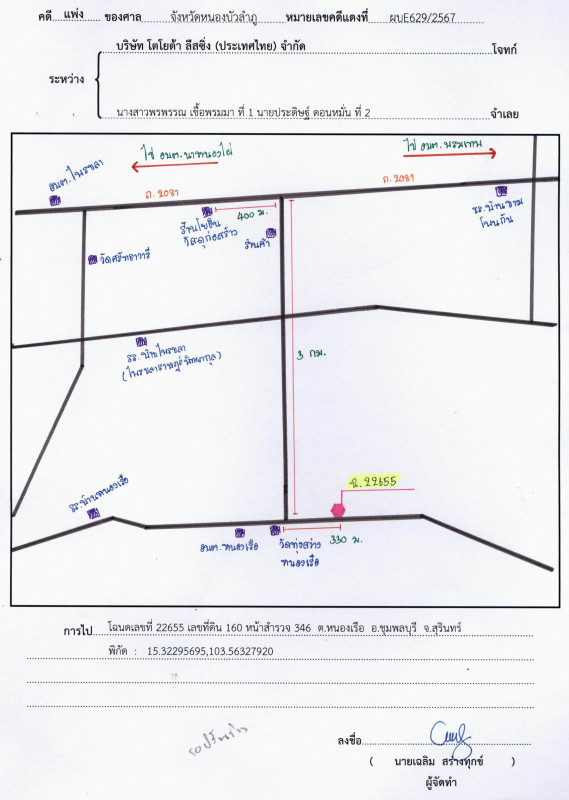 คดี แพ่ง ของศาล จังหวัดหนองบัวลำภู หมายเลขคดีแดงที่ ผบE629/2567
บริษัท โตโยต้า ลีสซิ่ง (ประเทศไทย) จำกัด โจทก์
ระหว่าง
นางสาวพรพรรณ เชื้อพรมมา ที่ 1 นายประดิษฐ์ ดอนหมั่น ที่ 2 จำเลย
ไป อบต.นาหนองไผ่
ไป อบต.พรมเทพ
อบต.ไพรขลา
ถ. 2081
ถ. 2081
รร.บ้านขาม
โนนกัน
400 ม.
วัสดุก่อสร้าง
ร้านค้า
3 กม.
รร.บ้านไพรขลา
(ไพรขลาราษฎร์วิทยากุล)
น.22655
รร.บ้านหนองเรือ
อบต.หนองเรือ
วัดทุ่งสว่าง
หนองเรือ
330 ม.
การไป โฉนดเลขที่ 22655 เลขที่ดิน 160 หน้าสำรวจ 346 ต.หนองเรือ อ.ชุมพลบุรี จ.สุรินทร์
พิกัด : 15.32295695,103.56327920
ลงชื่อ
( นายเฉลิม สร้างทุกข์ )
ผู้จัดทำ